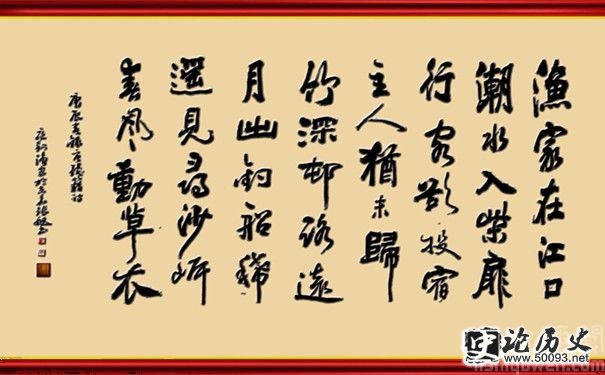 漁家在江口
潮水入柴扉
行客欲投宿
主人猶未歸
竹深邨路遠
月出釣船稀
遥見尋沙岸
春風動草衣
论历史
www.50093.net